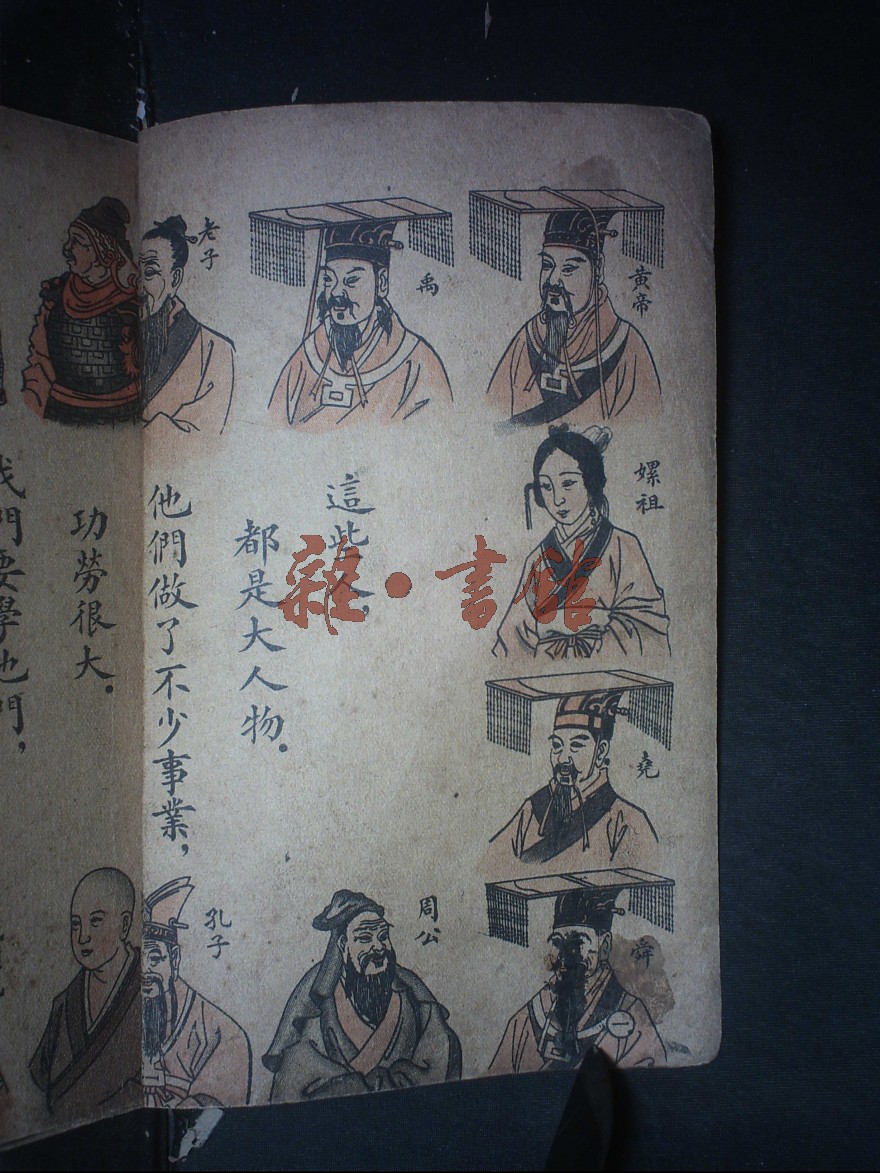 黃帝
嫘祖
堯
舜
禹
周公
老子
孔子
這些人，
都是大人物。
他們做了不少事業，
功勞很大。
我們要學他們，
雜·書館
一